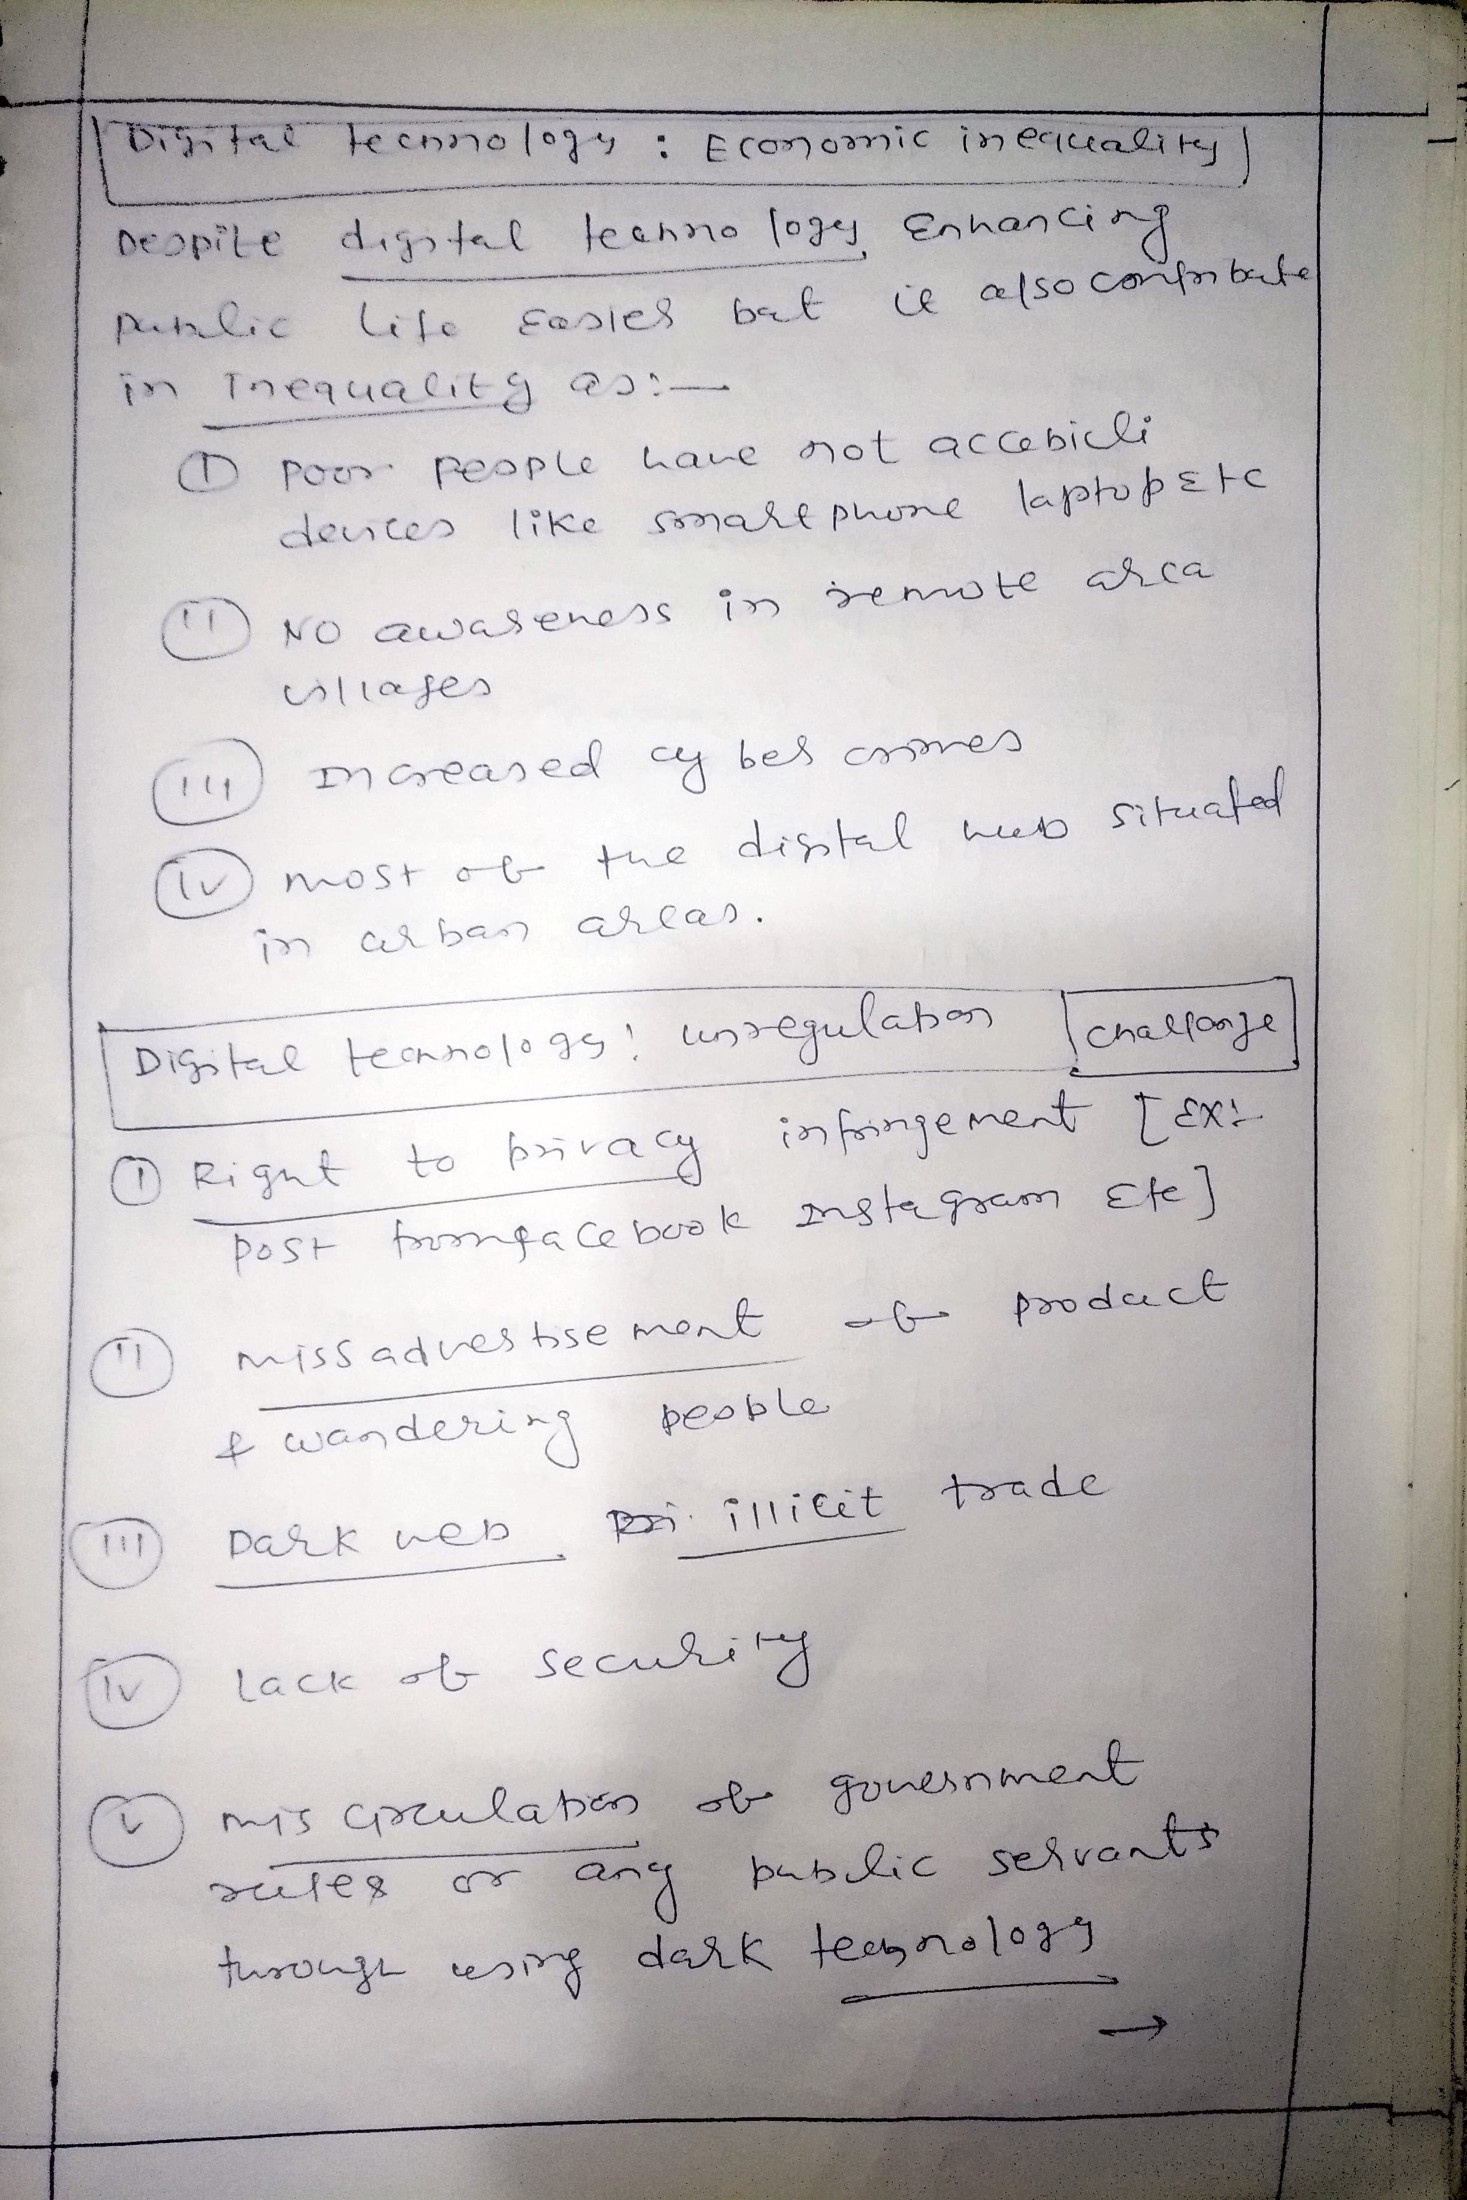 Digital technology : Economic inequality
Despite digital technology Enhancing
public life easier but it also contribute
in Inequality as:-
(I) Poor people have not accebicli
devices like smartphone laptop Etc
(II) NO awareness in remote area
villages
(III) Increased cyber crimes
(IV) most of the digital hub situated
in urban areas.
Digital technology: unregulation challange
(I) Right to privacy infringement [EX:-
post from facebook Instagram Etc]
(II) miss advertisement of product
& wandering people
(III) Dark web illicit trade
(IV) Lack of security
(V) mis circulation of government
rules or any public servants
through using dark technology
→